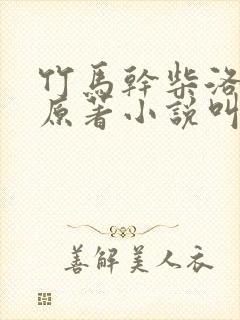 竹馬幹柴洛
原著小說叫
善解美人衣